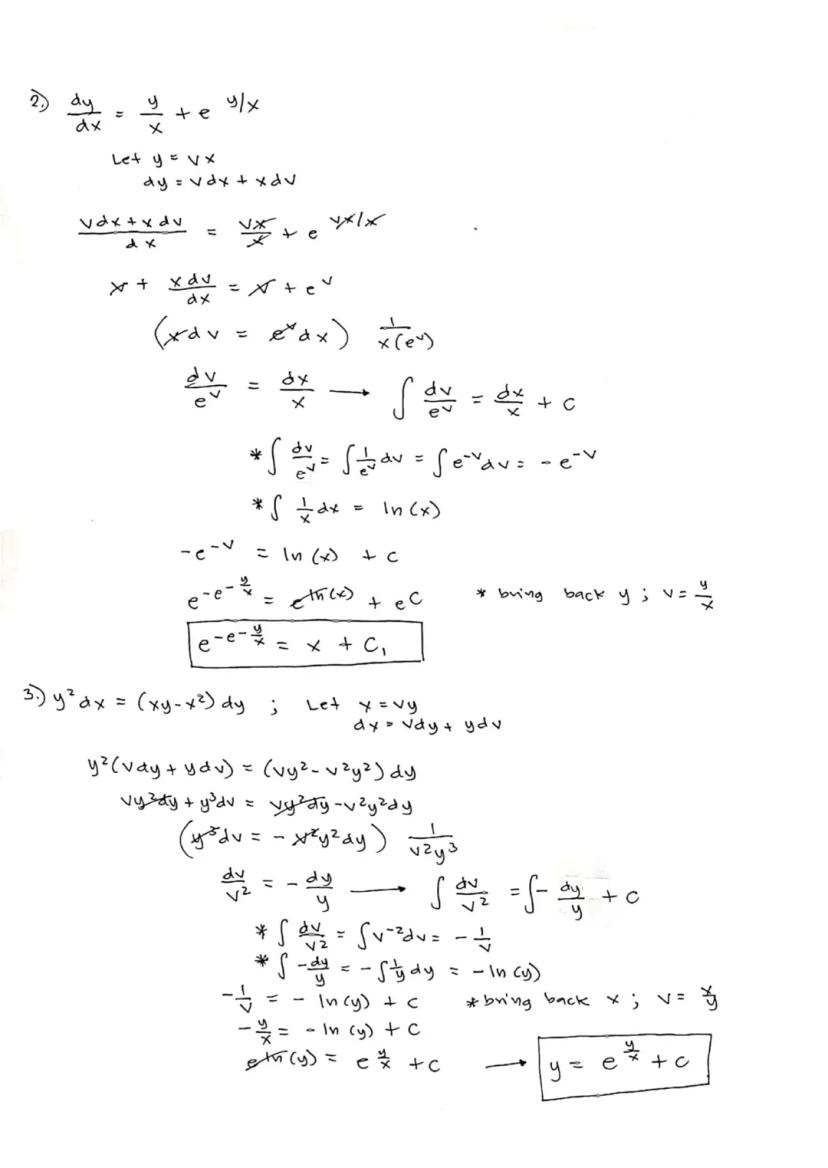 2.) dy/dx = y/x + e^(y/x)
Let y = vx
dy = vdx + xdv
(vdx + xdv)/dx = vx/x + e^(vx/x)
v + xdv/dx = v + e^v
(xdv = e^v dx) 1/(x(e^v))
dv/e^v = dx/x → ∫ dv/e^v = dx/x + c
* ∫ dv/e^v = ∫ 1/e^v dv = ∫ e^(-v) dv = -e^(-v)
* ∫ 1/x dx = ln(x)
-e^(-v) = ln(x) + c
e^(-e^(-y/x)) = e^(ln(x)) + e^c * bring back y ; v = y/x
e^(-e^(-y/x)) = x + C₁
3.) y² dx = (xy - x²) dy ; Let x = vy
dx = vdy + ydv
y²(vdy + ydv) = (vy² - v²y²) dy
vy²dy + y³dv = vy²dy - v²y²dy
(y³dv = -v²y²dy) 1/(v²y³)
dv/v² = - dy/y → ∫ dv/v² = ∫ - dy/y + c
* ∫ dv/v² = ∫ v⁻² dv = - 1/v
* ∫ -dy/y = -∫ 1/y dy = -ln(y)
-1/v = - ln(y) + c * bring back x ; v = x/y
-y/x = - ln(y) + c
e^(ln(y)) = e^(y/x) + c → y = e^(y/x) + c